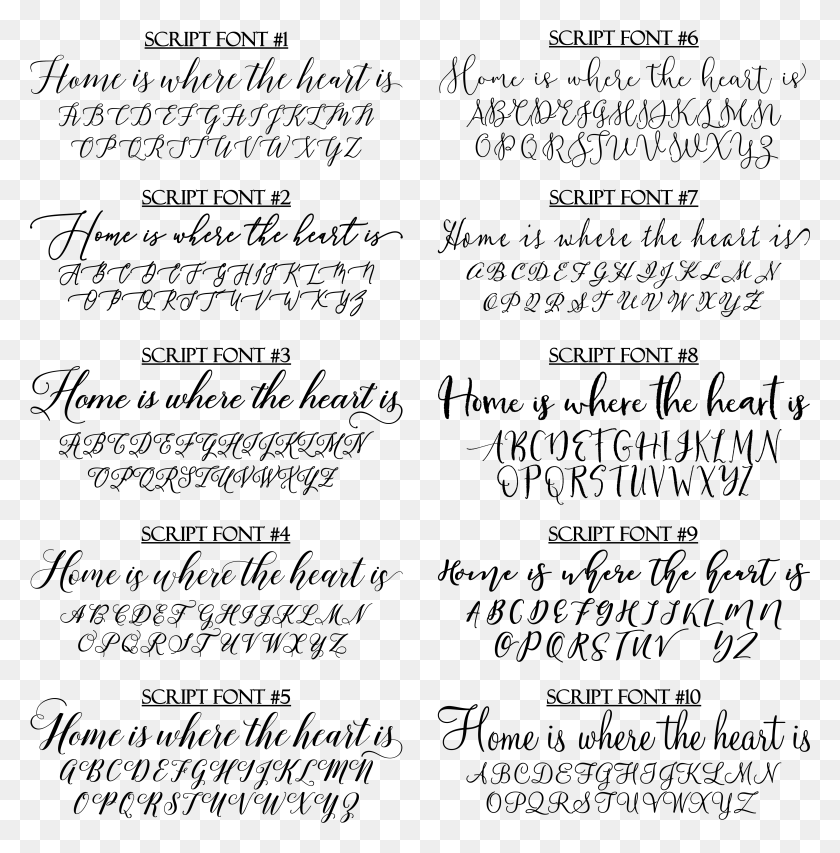 SCRIPT FONT #1
Home is where the heart is
ABCDEFGHIJKLMN
OPQRSTUVWXYZ
SCRIPT FONT #2
Home is where the heart is
ABCDEFGHIJKLMN
OPQRSTUVWXYZ
SCRIPT FONT #3
Home is where the heart is
ABCDEFGHIJKLMN
OPQRSTUVWXYZ
SCRIPT FONT #4
Home is where the heart is
ABCDEFGHIJKLMN
OPQRSTUVWXYZ
SCRIPT FONT #5
Home is where the heart is
ABCDEFGHIJKLMN
OPQRSTUVWXYZ
SCRIPT FONT #6
Home is where the heart is
ABCDEFGHIJKLMN
OPQRSTUVWXYZ
SCRIPT FONT #7
Home is where the heart is
ABCDEFGHIJKLMN
OPQRSTUVWXYZ
SCRIPT FONT #8
Home is where the heart is
ABCDEFGHIJKLMN
OPQRSTUVWXYZ
SCRIPT FONT #9
Home is where the heart is
ABCDEFGHIJKLMN
OPQRSTUV YZ
SCRIPT FONT #10
Home is where the heart is
ABCDEFGHIJKLMN
OPQRSTUVWXYZ